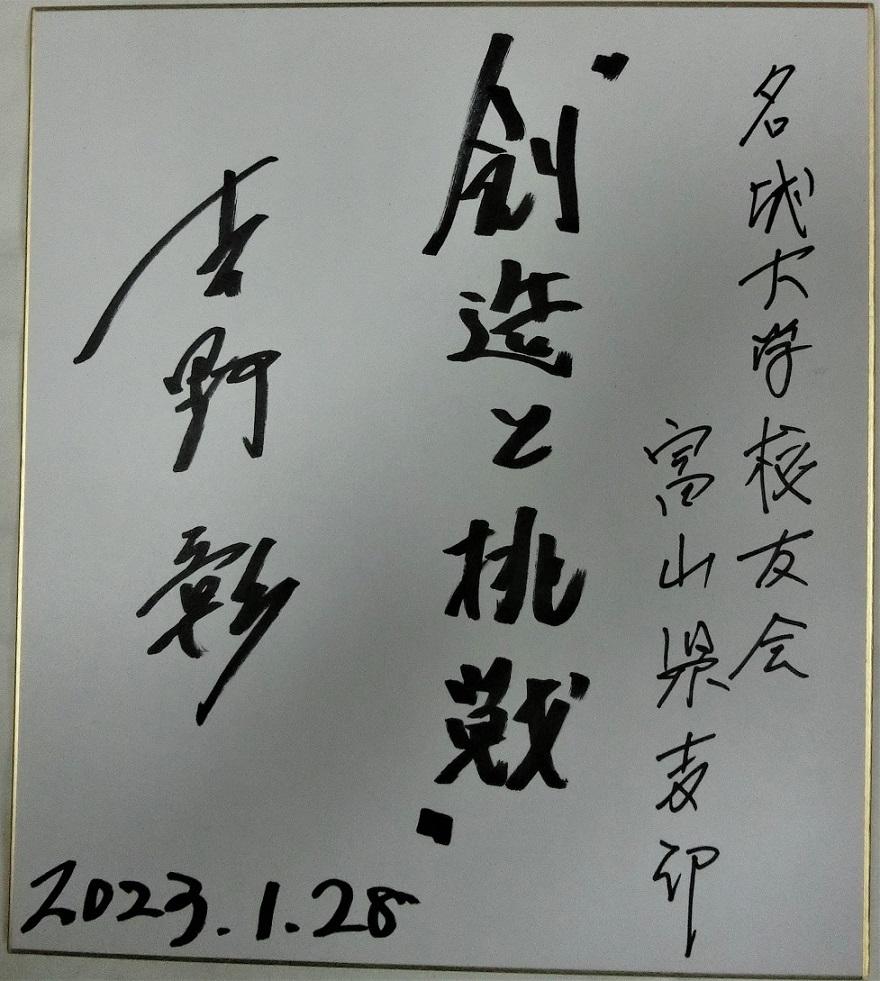 名城大学校友会
富山県支部
"創造と挑戦"
吉野彰
2023.1.28